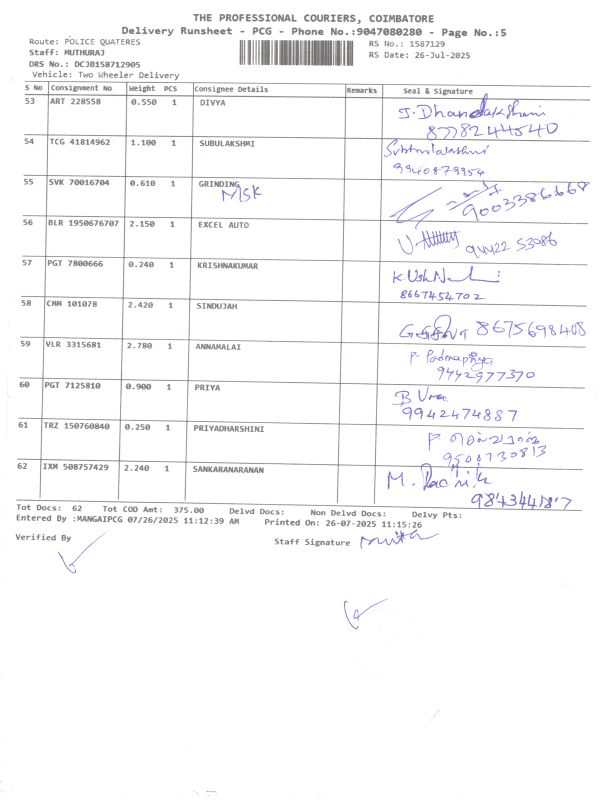 THE PROFESSIONAL COURIERS, COIMBATORE
Delivery Runsheet - PCG - Phone No.:9047080280 - Page No.:5
Route: POLICE QUATERES RS No.: 1587129
Staff: MUTHURAJ RS Date: 26-Jul-2025
DRS No.: DCJB158712905
Vehicle: Two Wheeler Delivery
S No Consignment No Weight PCS Consignee Details Remarks Seal & Signature
53 ART 228558 0.550 1 DIVYA
8778244540
54 TCG 41814962 1.100 1 SUBULAKSHMI Subbulakshmi
9940879954
55 SVK 70016704 0.610 1 GRINDING
MSK 9003386668
56 BLR 1950676707 2.150 1 EXCEL AUTO
94422 53086
57 PGT 7800666 0.240 1 KRISHNAKUMAR
8667454702
58 CMM 101078 2.420 1 SINDUJAH
8675698408
59 VLR 3315681 2.780 1 ANNAMALAI P. Padmapriya
9442977370
60 PGT 7125810 0.900 1 PRIYA B. Uma
9942474887
61 TRZ 150760840 0.250 1 PRIYADHARSHINI
9500730813
62 IXM 508757429 2.240 1 SANKARANARANAN
Tot Docs: 62 Tot COD Amt: 375.00 Delvd Docs: Non Delvd Docs: Delvy Pts:
Entered By :MANGAIPCG 07/26/2025 11:12:39 AM Printed On: 26-07-2025 11:15:26
Verified By Staff Signature